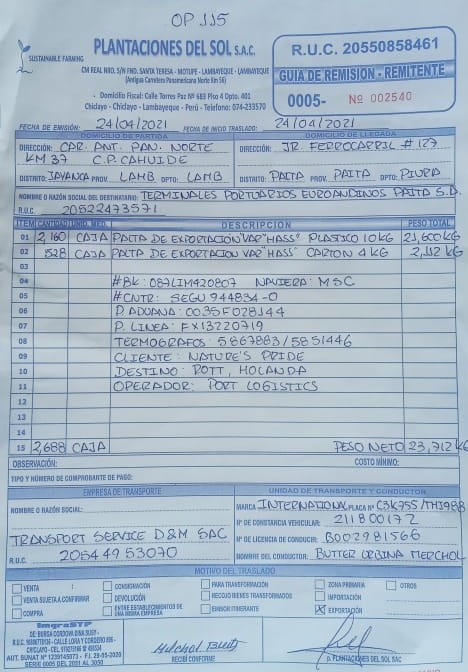 OP 115
SUSTAINABLE FARMING
PLANTACIONES DEL SOL S.A.C.
CM REAL NRO. S/N FND. SANTA TERESA - MOTUPE - LAMBAYEQUE - LAMBAYEQUE
(Antigua Carretera Panamericana Norte Km 56)
- Domicilio Fiscal: Calle Torres Paz Nº 683 Piso 4 Dpto. 401
Chiclayo - Chiclayo - Lambayeque - Perú - Telefono: 074-233570
R.U.C. 20550858461
GUIA DE REMISIÓN - REMITENTE
0005- Nº 002540
FECHA DE EMISIÓN: 24/04/2021 FECHA DE INICIO TRASLADO: 24/04/2021
DOMICILIO DE PARTIDA DOMICILIO DE LLEGADA
DIRECCIÓN: CAR. ANT. PAN. NORTE DIRECCIÓN: JR. FERROCARRIL # 127
KM 37 C.P. CAHUIDE
DISTRITO: JAYANCA PROV. LAMB DPTO: LAMB DISTRITO: PAITA PROV. PAITA DPTO: PIURA
NOMBRE O RAZÓN SOCIAL DEL DESTINATARIO: TERMINALES PORTUARIOS EUROANDINOS PAITA S.A.
R.U.C. 20522473571
ITEM CANTIDAD UNID. MED. DESCRIPCION PESO TOTAL
01 2,160 CAJA PALTA DE EXPORTACION VAR "HASS" PLASTICO 10 KG 21,600 KG
02 528 CAJA PALTA DE EXPORTACION VAR "HASS" CARTON 4 KG 2,112 KG
03
04 #BK: 087LIM420807 NAVIERA: MSC
05 #CNTR: SEGU 944834-0
06 P. ADUANA: 0035F028144
07 P. LINEA: FX13220719
08 TERMOGRAFOS: 5867883/5851446
09 CLIENTE: NATURE'S PRIDE
10 DESTINO: ROTT, HOLANDA
11 OPERADOR: PORT LOGISTICS
12
13
14
15 2,688 CAJA PESO NETO 23,712 KG
OBSERVACIÓN: COSTO MÍNIMO:
TIPO Y NÚMERO DE COMPROBANTE DE PAGO:
EMPRESA DE TRANSPORTE UNIDAD DE TRANSPORTE Y CONDUCTOR
NOMBRE O RAZÓN SOCIAL: MARCA INTERNATIONAL PLACA Nº C3K755/
Nº DE CONSTANCIA VEHICULAR: 211800172
TRANSPORT SERVICE D&M SAC Nº DE LICENCIA DE CONDUCIR: B002981566
R.U.C. 20544953070 NOMBRE DEL CONDUCTOR:
MOTIVO DEL TRASLADO
VENTA CONSIGNACIÓN PARA TRANSFORMACIÓN ZONA PRIMARIA OTROS
VENTA SUJETA A CONFIRMAR DEVOLUCIÓN RECOJO BIENES TRANSFORMADOS IMPORTACIÓN
COMPRA ENTRE ESTABLECIMIENTOS DE UNA MISMA EMPRESA EMISOR ITINERANTE EXPORTACIÓN
DE: BURGA CORDOVA DINA SUSY -
SERIE 0005 DEL 2001 AL 3050
RECIBI CONFORME
p. PLANTACIONES DEL SOL SAC